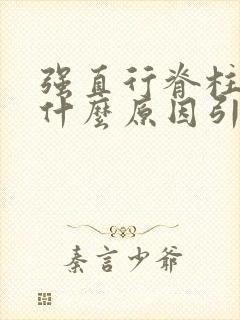 强直行脊柱
什麼原因引
秦言少爷